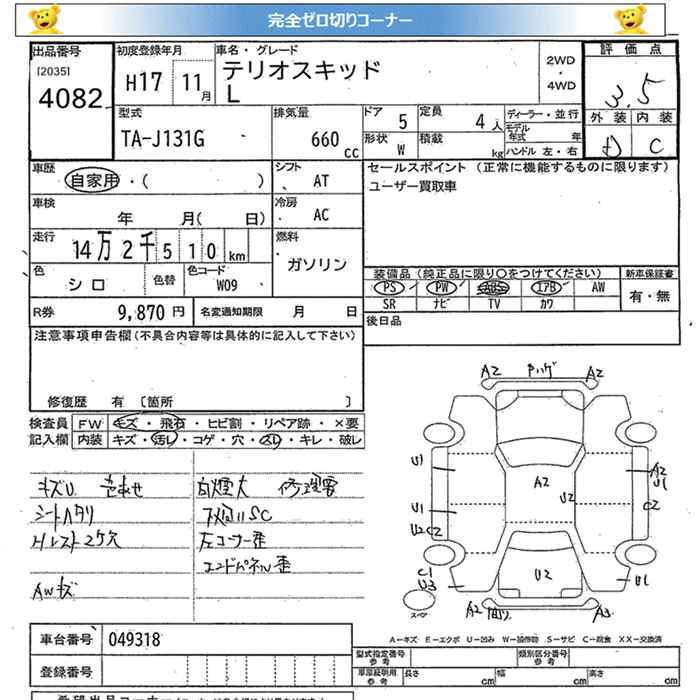 完全ゼロ切りコーナー
出品番号
[2035]
4082
初度登録年月
H17 11月
車名・グレード
テリオスキッド
L
2WD
・
4WD
評価点
3.5
外装 内装
D C
型式
TA-J131G
排気量
660 cc
ドア 5
定員 4人
ディーラー・並行
モデル年式 年
形状 W
積載 kg
ハンドル 左・右
車歴
自家用・( )
シフト
AT
セールスポイント (正常に機能するものに限ります)
ユーザー買取車
車検
年 月( 日)
冷房
AC
走行
14万2千510km
燃料
ガソリン
色
シロ
色替
色コード
W09
装備品(純正品に限り○をつけてください)
新車保証書
PS PW ABS エアB AW
有・無
SR ナビ TV カワ
R券 9,870円
名変通知期限 月 日
後日品
注意事項申告欄(不具合内容等は具体的に記入して下さい)
修復歴 有 〔箇所 〕
検査員記入欄
FW キズ・飛石・ヒビ割・リペア跡・×要
内装 キズ・汚レ・コゲ・穴・スレ・キレ・破レ
キズU 色あせ
シートヘタリ
AWキズ
白煙大 修理要
下廻りSC
左コーナー歪
エンドパネル歪
A2 A2
A2
U2
U1
A2
U1
U1
U2 C2
C2
C1
U3
U2
U1
スペア
A2
A3
A−キズ E−エクボ U−凹み W−補修跡 S−サビ C−腐食 XX−交換済
車台番号 049318
登録番号
型式指定番号
参考
類別区分番号
参考
車庫証明用
参考
長さ cm
幅 cm
高さ cm